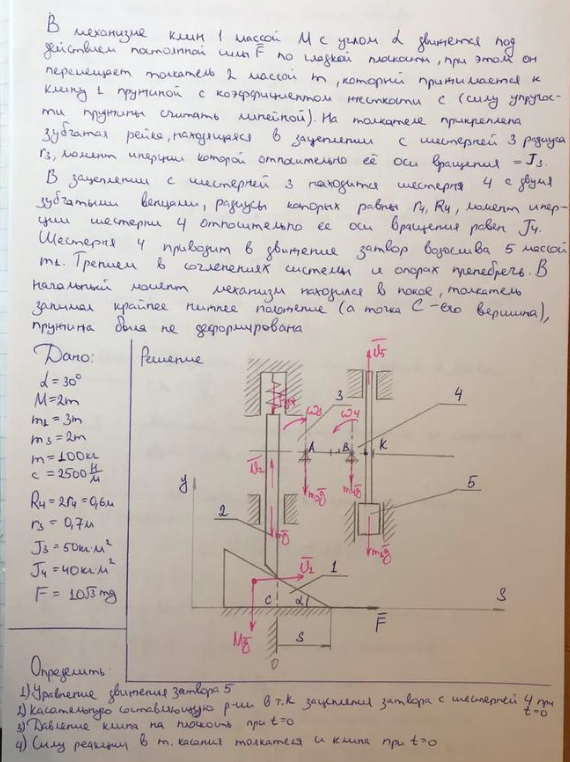 В механизме клин 1 массой M с углом α движется под
действием постоянной силы F̄ по гладкой плоскости, при этом он
перемещает толкатель 2 массой m, который прижимается к
клину 1 пружиной с коэффициентом жесткости c (силу упругос-
ти пружины считать линейной). На толкателе прикреплена
зубчатая рейка, находящаяся в зацеплении с шестерней 3 радиуса
r₃, момент инерции которой относительно её оси вращения = J₃.
В зацеплении с шестерней 3 находится шестерня 4 с двумя
зубчатыми венцами, радиусы которых равны r₄, R₄, момент инер-
ции шестерни 4 относительно ее оси вращения равен J₄.
Шестерня 4 приводит в движение затвор водослива 5 массой
m₁. Трением в сочленениях системы и опорах пренебречь. В
начальный момент механизм находился в покое, толкатель
занимал крайнее нижнее положение (а точка C - его вершина),
пружина была не деформирована
Дано:
α = 30°
M = 2m
m₁ = 3m
m₃ = 2m
m = 100кг
c = 2500 Н/м
R₄ = 2r₄ = 0,6м
r₃ = 0,7м
J₃ = 50кг·м²
J₄ = 40кг·м²
F = 10√3 mg
Решение
V̄₅
3
4
ω̄₃
ω̄₄
A
B
K
V̄₂
5
y
2
mḡ
1
V̄₁
C
α
S
F̄
S
Mḡ
O
Определить:
1) Уравнение движения затвора 5
2) Касательную составляющую р-ии в т. K зацепления затвора с шестерней 4 при t=0
3) Давление клина на плоскость при t=0
4) Силу реакции в т. касания толкателя и клина при t=0